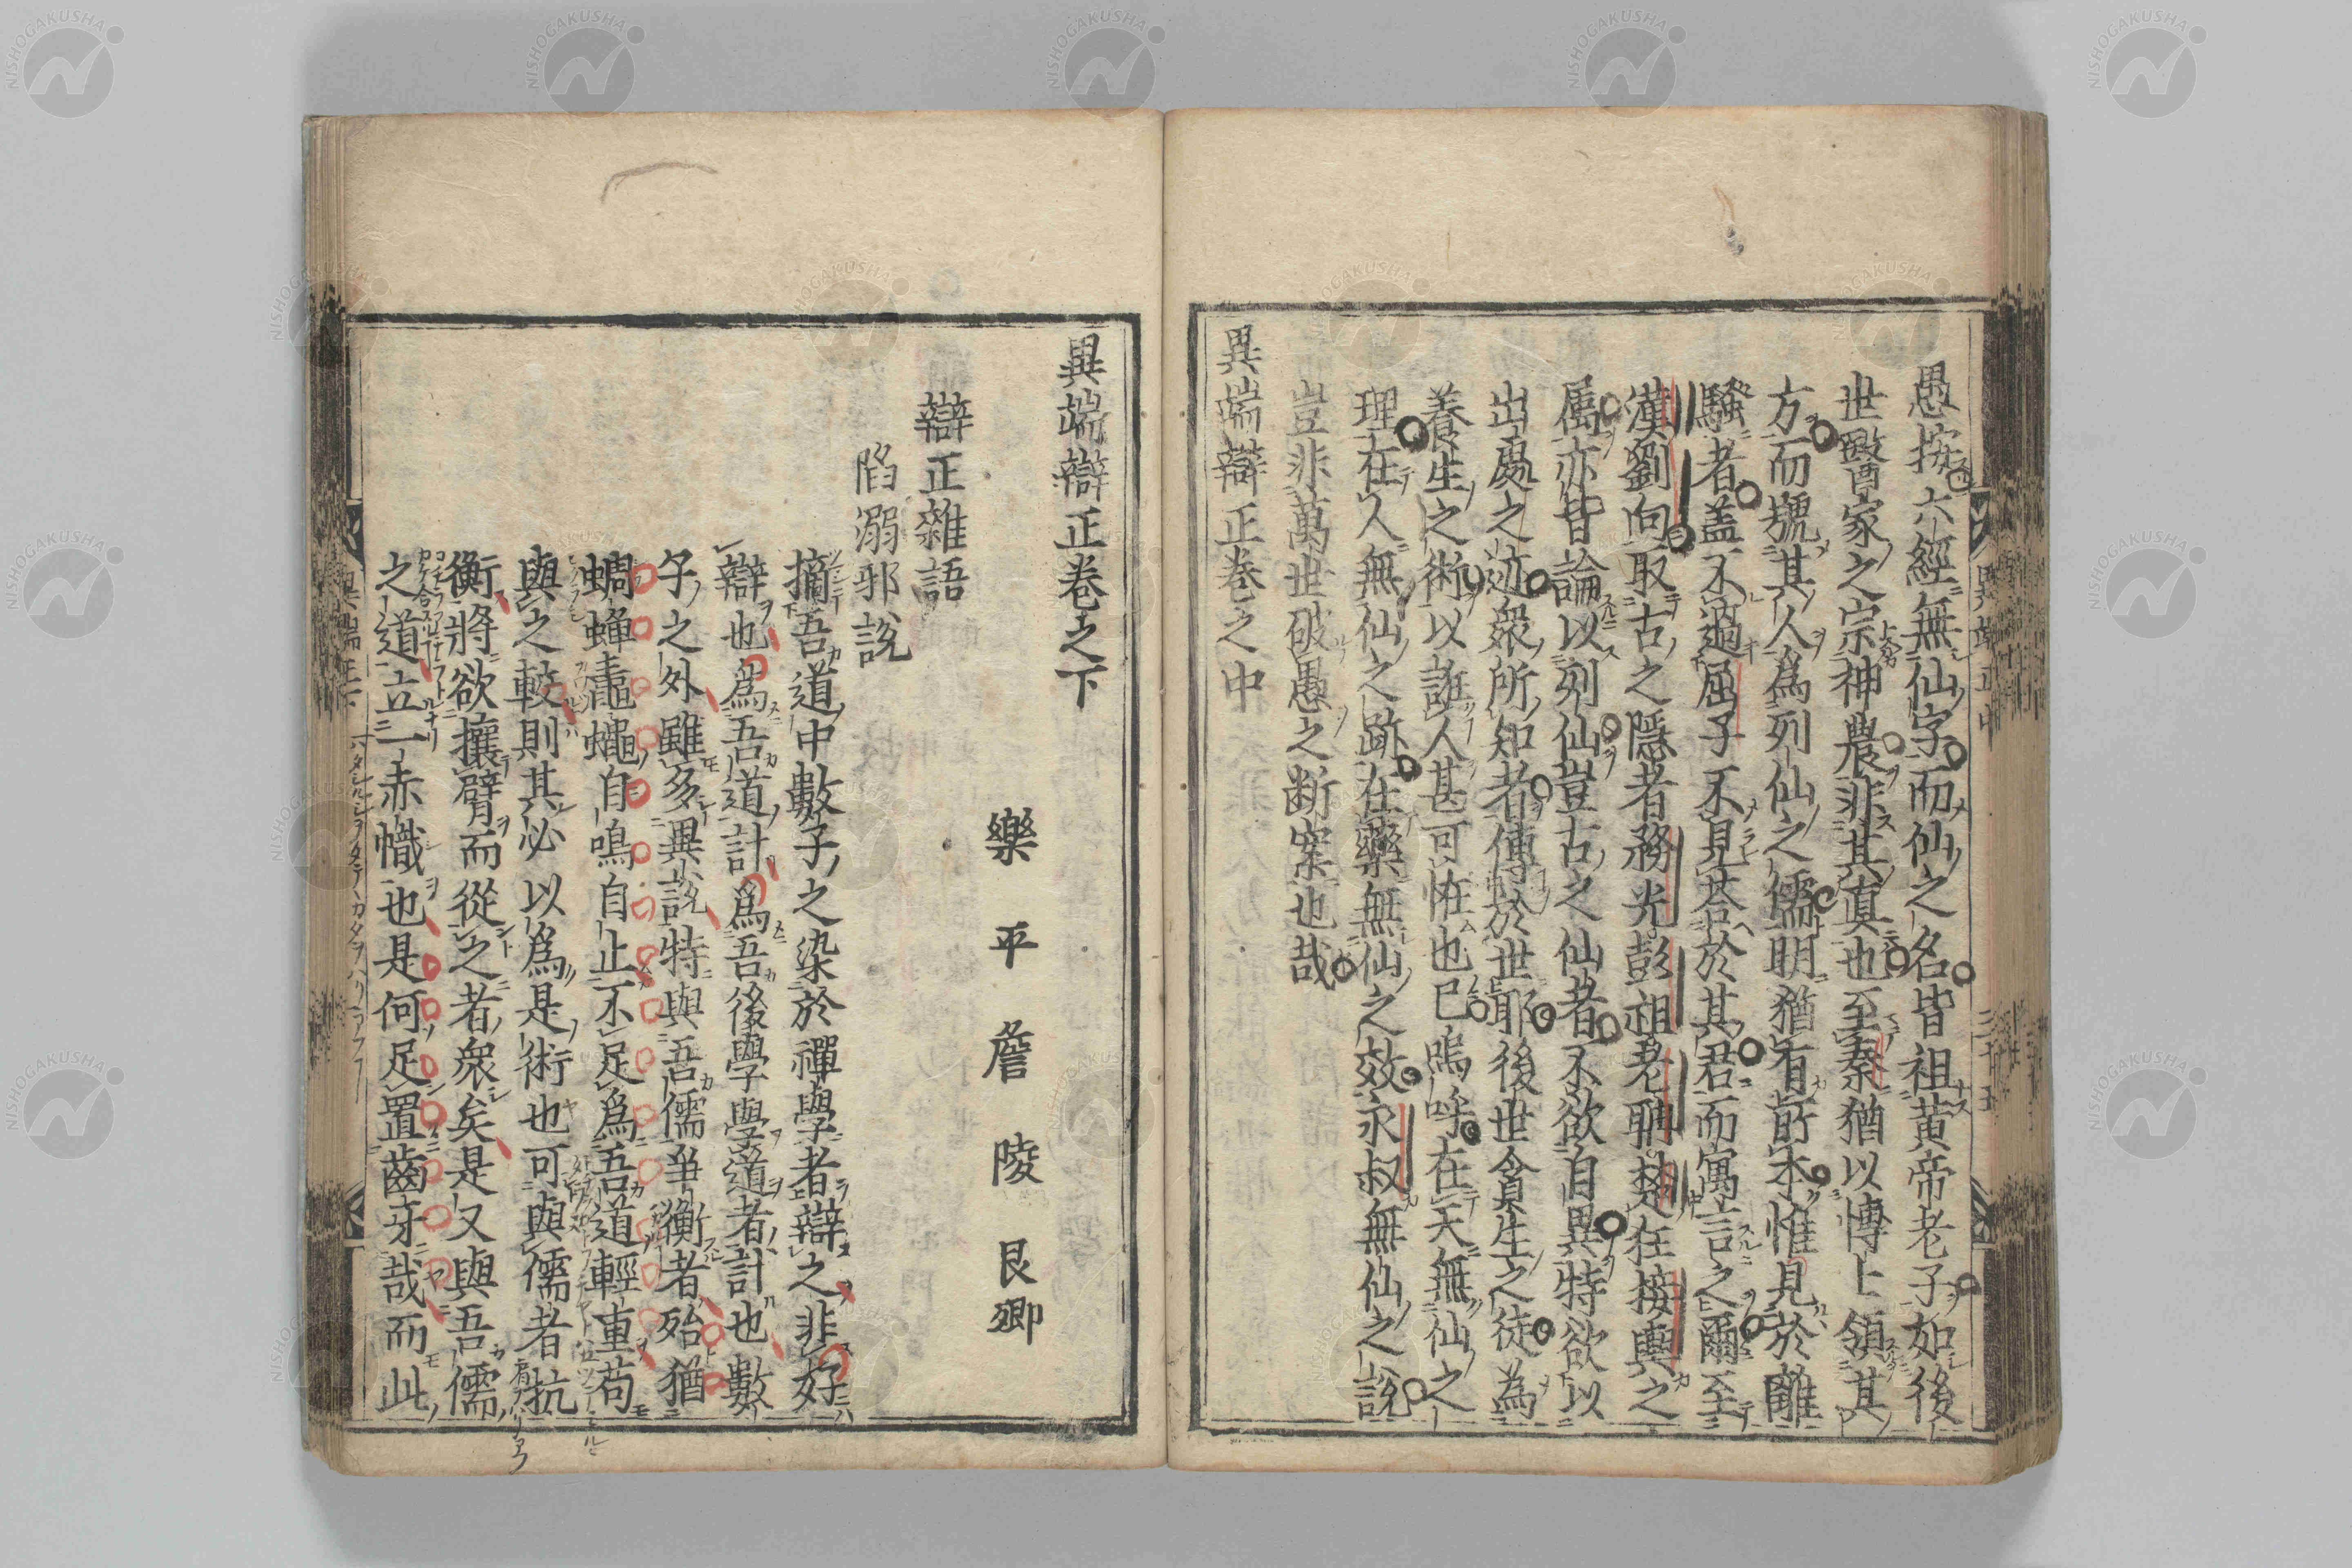 愚按六經無仙字而仙之名皆祖黃帝老子如後
世醫家之宗神農非其真也至秦猶以博士領其
方而號其人爲列仙之儒明猶有所本惟見於離
騷者盖不過屈子不見荅於其君而寓言之爾至
漢劉向取古之隱者務光彭祖老聃楚狂接輿之
属亦皆論以列仙豈古之仙者不欲自異特欲以
出處之迹衆所知者傳於世耶後世貪生之徒為
養生之術以誑人甚可恠也已嗚呼在天無仙之
理在人無仙之跡在藥無仙之效永叔無仙之說
豈非萬世破愚之断案也哉
異端辯正卷之中
異端辯正卷之下
樂平詹陵艮卿
辯正雜語
陷溺邪說
摘吾道中數子之染於禪學者辯之非好
辯也爲吾道計爲吾後學學道者計也數
子之外雖多異說特與吾儒爭衡者殆猶
蜩蟬䵷蠅自鳴自止不足爲吾道輕重苟
與之較則其必以爲是術也可與儒者抗
衡將欲攘臂而從之者衆矣是又與吾儒
之道立一赤幟也是何足置齒牙哉而此